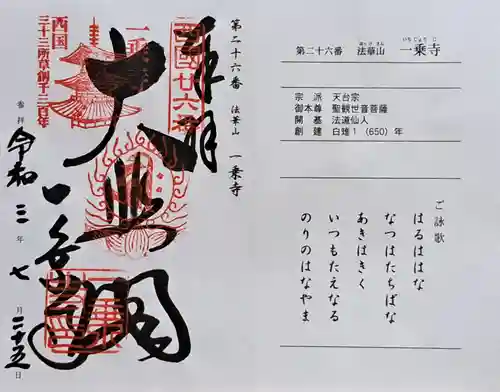 第二十六番 法華山 一乗寺
奉拝
西國廿六番
一乗
大悲閣
一乗寺
西国
三十三所草創千三百年
参拝 令和三年七月二十五日
第二十六番 法華山 一乗寺
ほっけさん いちじょうじ
宗 派 天台宗
御本尊 聖観世音菩薩
開 基 法道仙人
創 建 白雉1(650)年
ご詠歌
はるははな
なつはたちばな
あきはきく
いつもたえなる
のりのはなやま